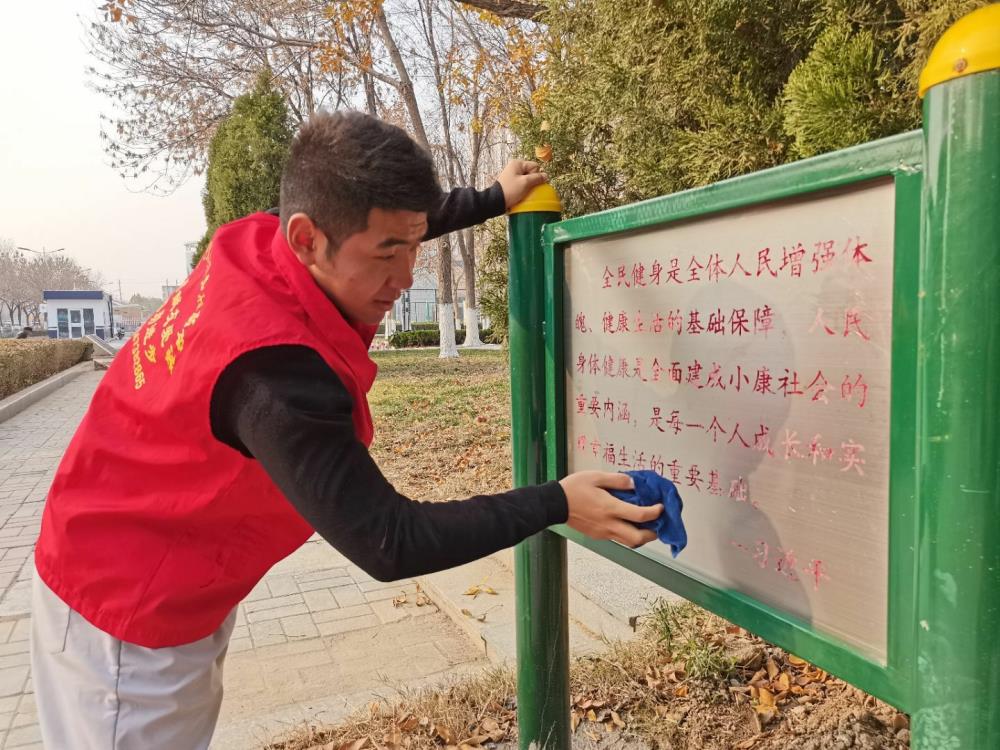 全民健身是全体人民增强体
魄、健康生活的基础保障 人民
身体健康是全面建成小康社会的
重要内涵，是每一个人成长和实
幸福生活的重要基础。
一习近平